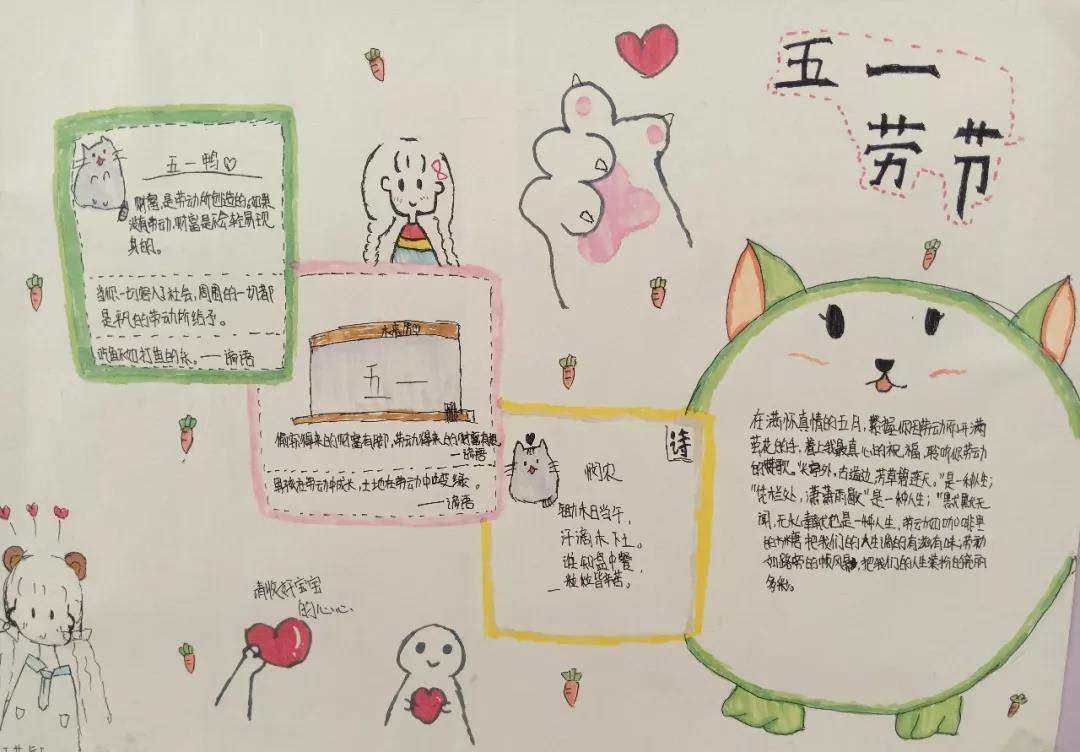 五一
劳节
五一鸭
财富,是劳动所创造的。如果
没有劳动,财富是不会轻易现
身的。
当你一切踏入了社会,周围的一切都
是平凡的劳动所给予。
吃鱼不如打鱼的乐。——谚语
五一
偷窃得来的财富有脚,劳动得来的财富有翅
——谚语
男孩在劳动中成长,土地在劳动中变绿。
——谚语
诗
悯农
锄禾日当午,
汗滴禾下土。
谁知盘中餐,
粒粒皆辛苦。
在满怀真情的五月,紧握你因劳动所开满
茧花的手,着上我最真心的祝福,聆听你劳动
的赞歌。"长亭外,古道边,芳草碧连天。"是一种人生;
"凭栏处,潇潇雨歇"是一种人生;"默默无
闻,无私奉献也是一种人生,劳动如咖啡里
的方糖把我们的人生调的有滋有味;劳动
如路旁的帧风景,把我们的人生装扮的绚丽
多彩。
请收好宝宝
的心心